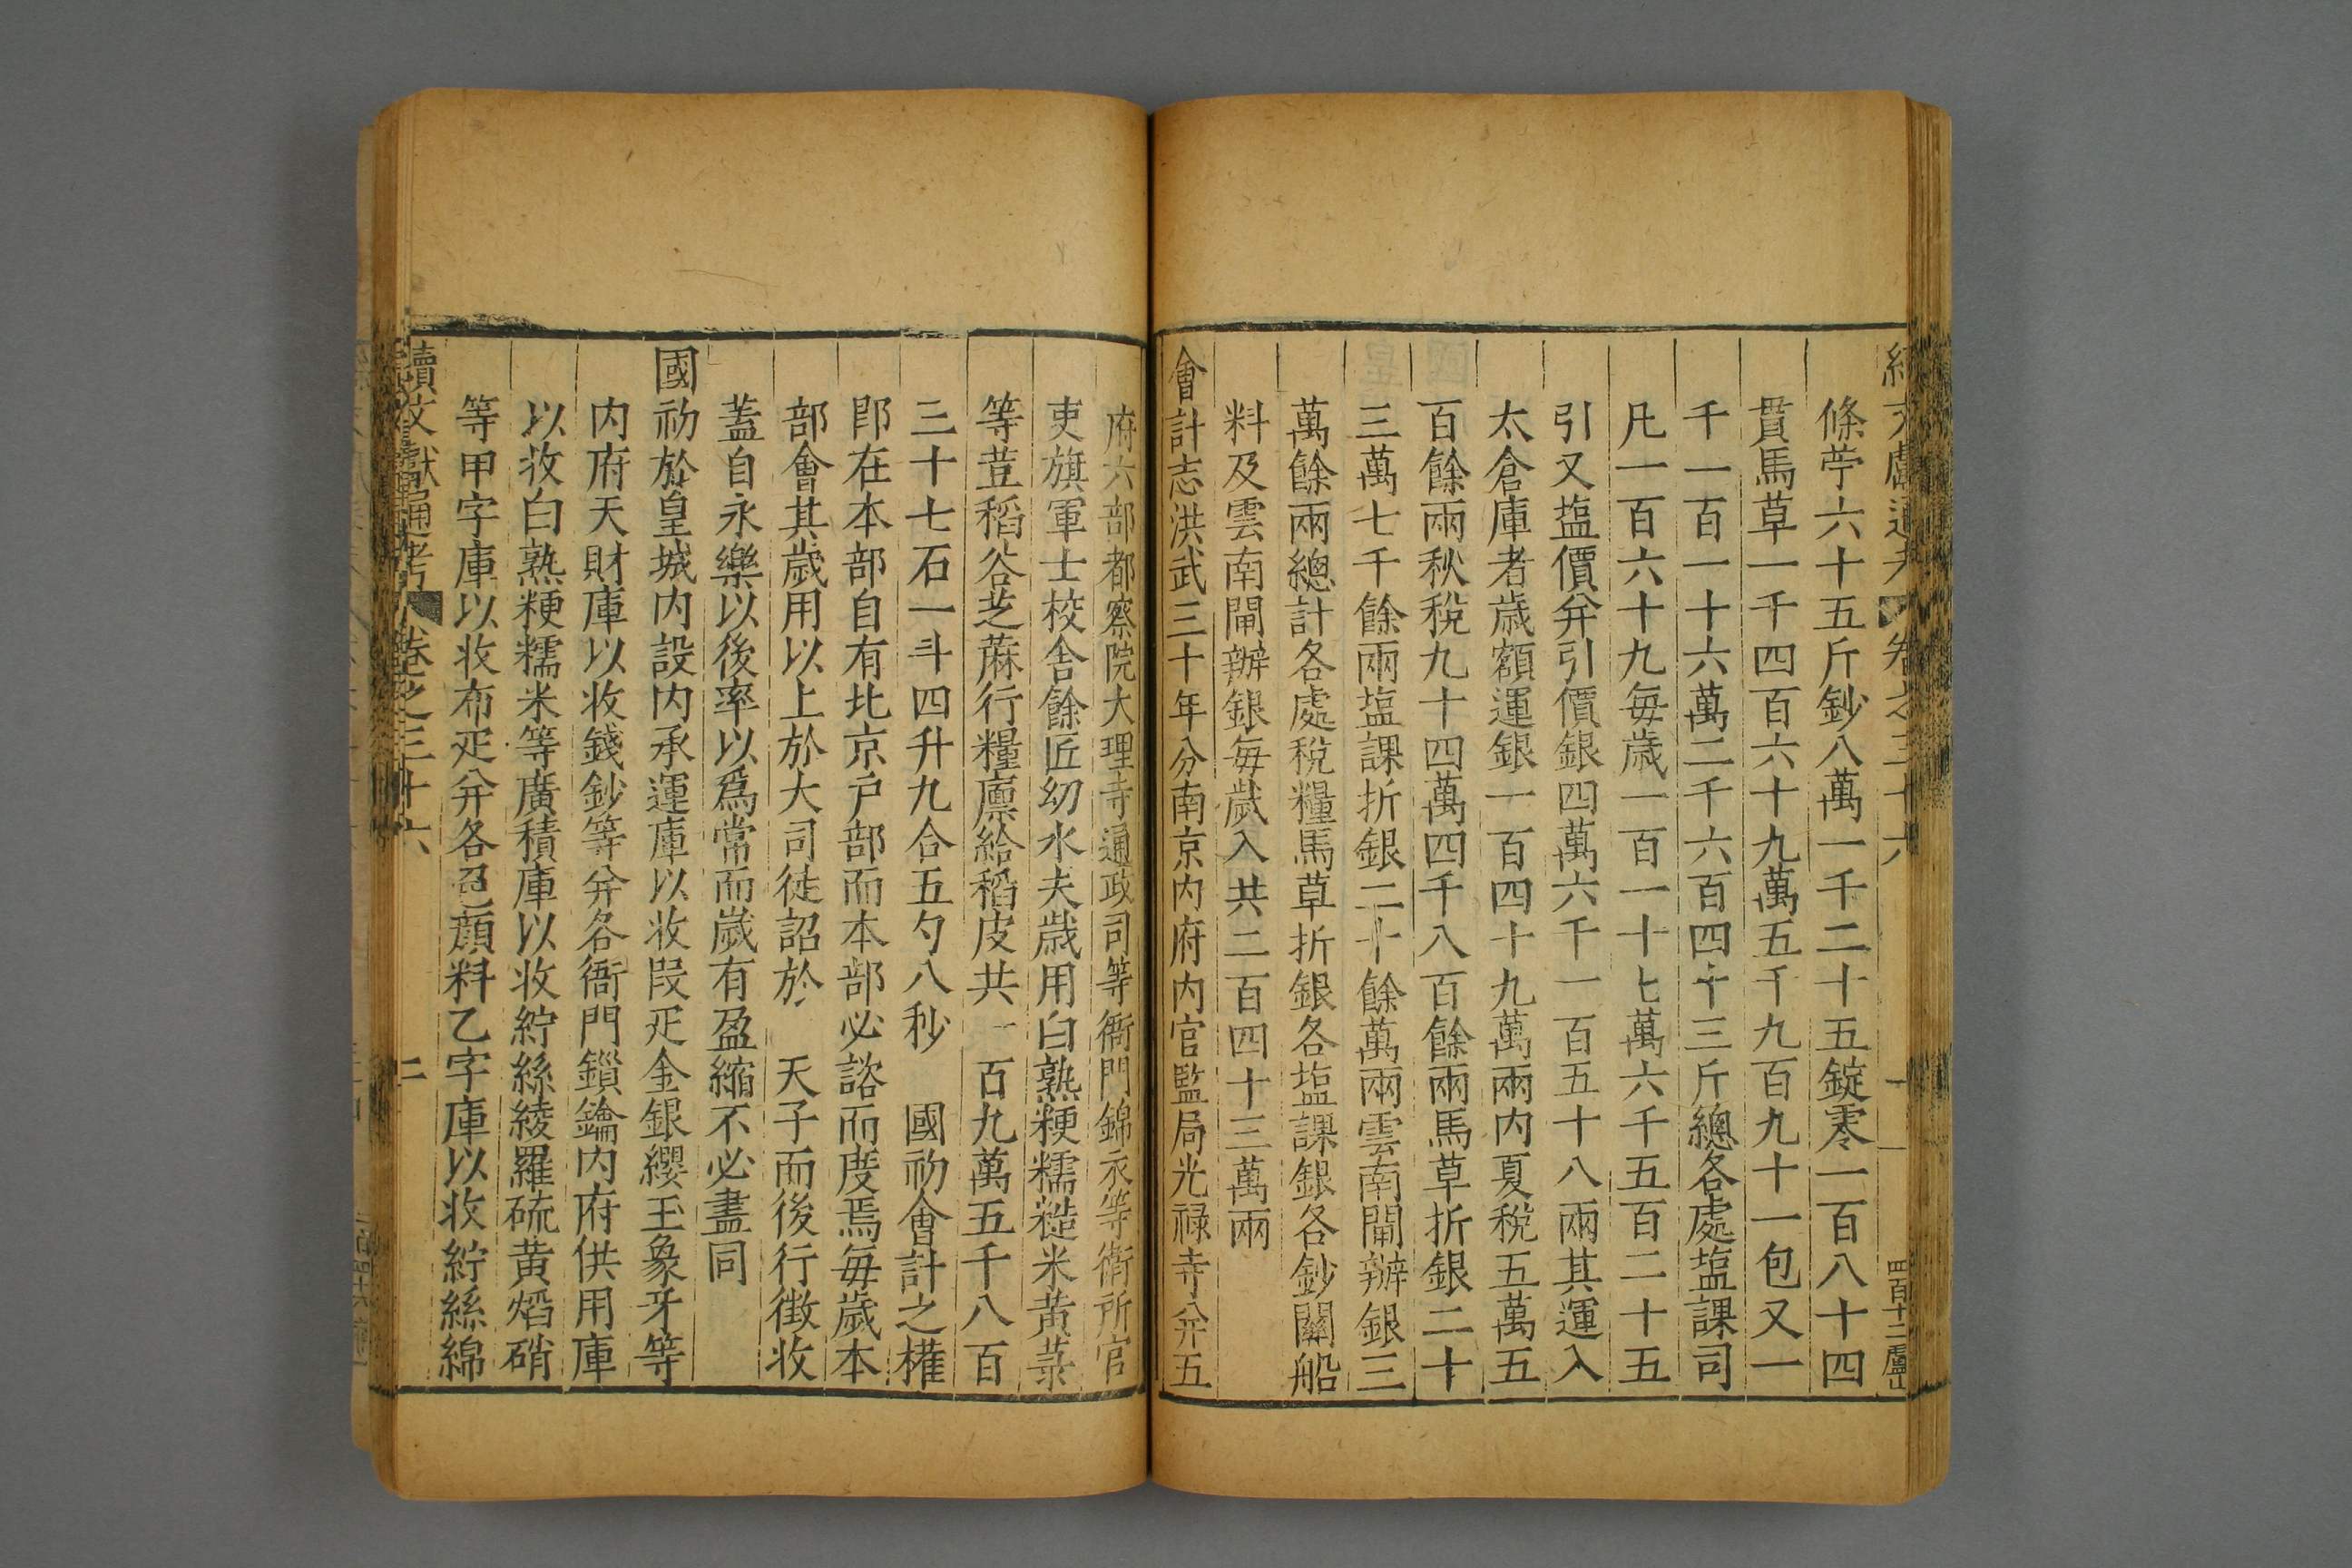 續文獻通考 卷之三十六 一 四百十二 盧山
條苧六十五斤鈔八萬一千二十五錠零一百八十四
貫馬草一千四百六十九萬五千九百九十一包又一
千一百一十六萬二千六百四十三斤總各處塩課司
凡一百六十九每歲一百一十七萬六千五百二十五
引又塩價弁引價銀四萬六千一百五十八兩其運入
太倉庫者歲額運銀一百四十九萬兩内夏稅五萬五
百餘兩秋稅九十四萬四千八百餘兩馬草折銀二十
三萬七千餘兩塩課折銀二十餘萬兩雲南閘辦銀三
萬餘兩總計各處稅糧馬草折銀各塩課銀各鈔關船
料及雲南閘辦銀每歲入共二百四十三萬兩
會計志洪武三十年分南京内府内官監局光禄寺弁五
府六部都察院大理寺通政司等衙門錦衣等衛所官
吏旗軍士校舍餘匠㓜水夫歲用白熟粳糯糙米黃菉
等荳稻谷芝蔴行糧廪給稻皮共一百九萬五千八百
三十七石一斗四升九合五勺八秒 國初會計之權
即在本部自有北京户部而本部必諮而度焉每歲本
部會其歲用以上於大司徒詔於 天子而後行徴收
蓋自永樂以後率以爲常而歲有盈縮不必盡同
國初於皇城内設内承運庫以收叚疋金銀纓玉象牙等
内府天財庫以收錢鈔等弁各衙門鎖鑰内府供用庫
以收白熟粳糯米等廣積庫以收紵絲綾羅硫黃熖硝
等甲字庫以收布疋弁各色顔料乙字庫以收紵絲綿
續文獻通考 卷之三十六 二